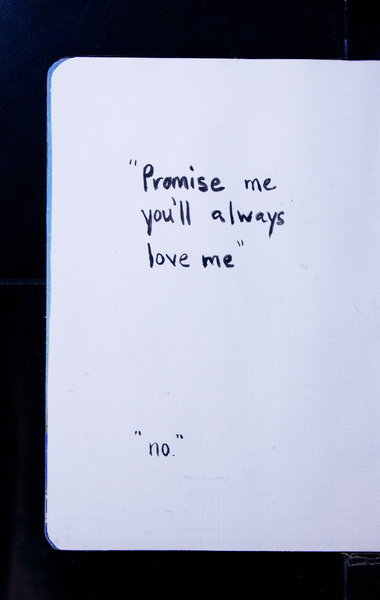 "Promise me
you'll always
love me"
"no."